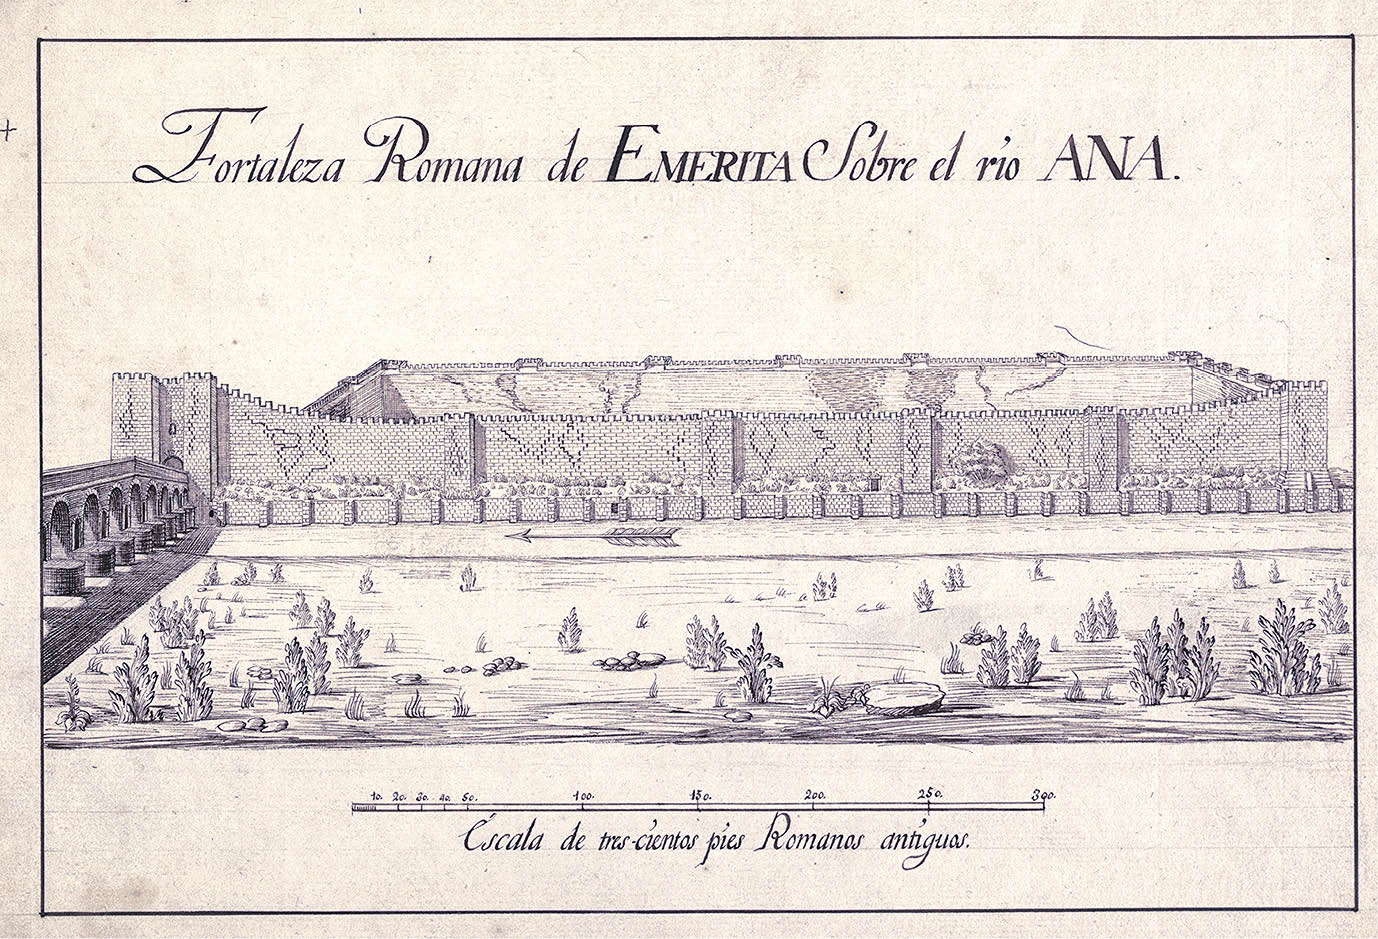 Fortaleza Romana de EMERITA Sobre el rio ANA.
10. 20. 30. 40. 50. 100. 150. 200. 250. 300.
Escala de tres-cientos pies Romanos antiguos.